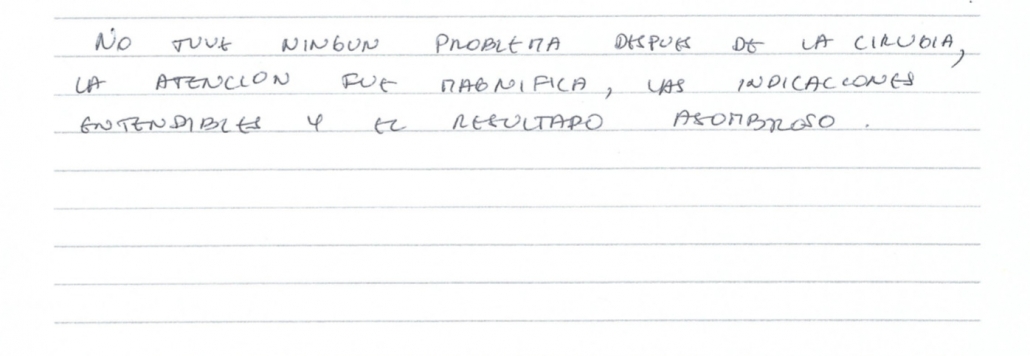 NO TUVE NINGUN PROBLEMA DESPUES DE LA CIRUGIA,
LA ATENCION FUE MAGNIFICA, LAS INDICACIONES
ENTENDIBLES Y EL RESULTADO ASOMBROSO.